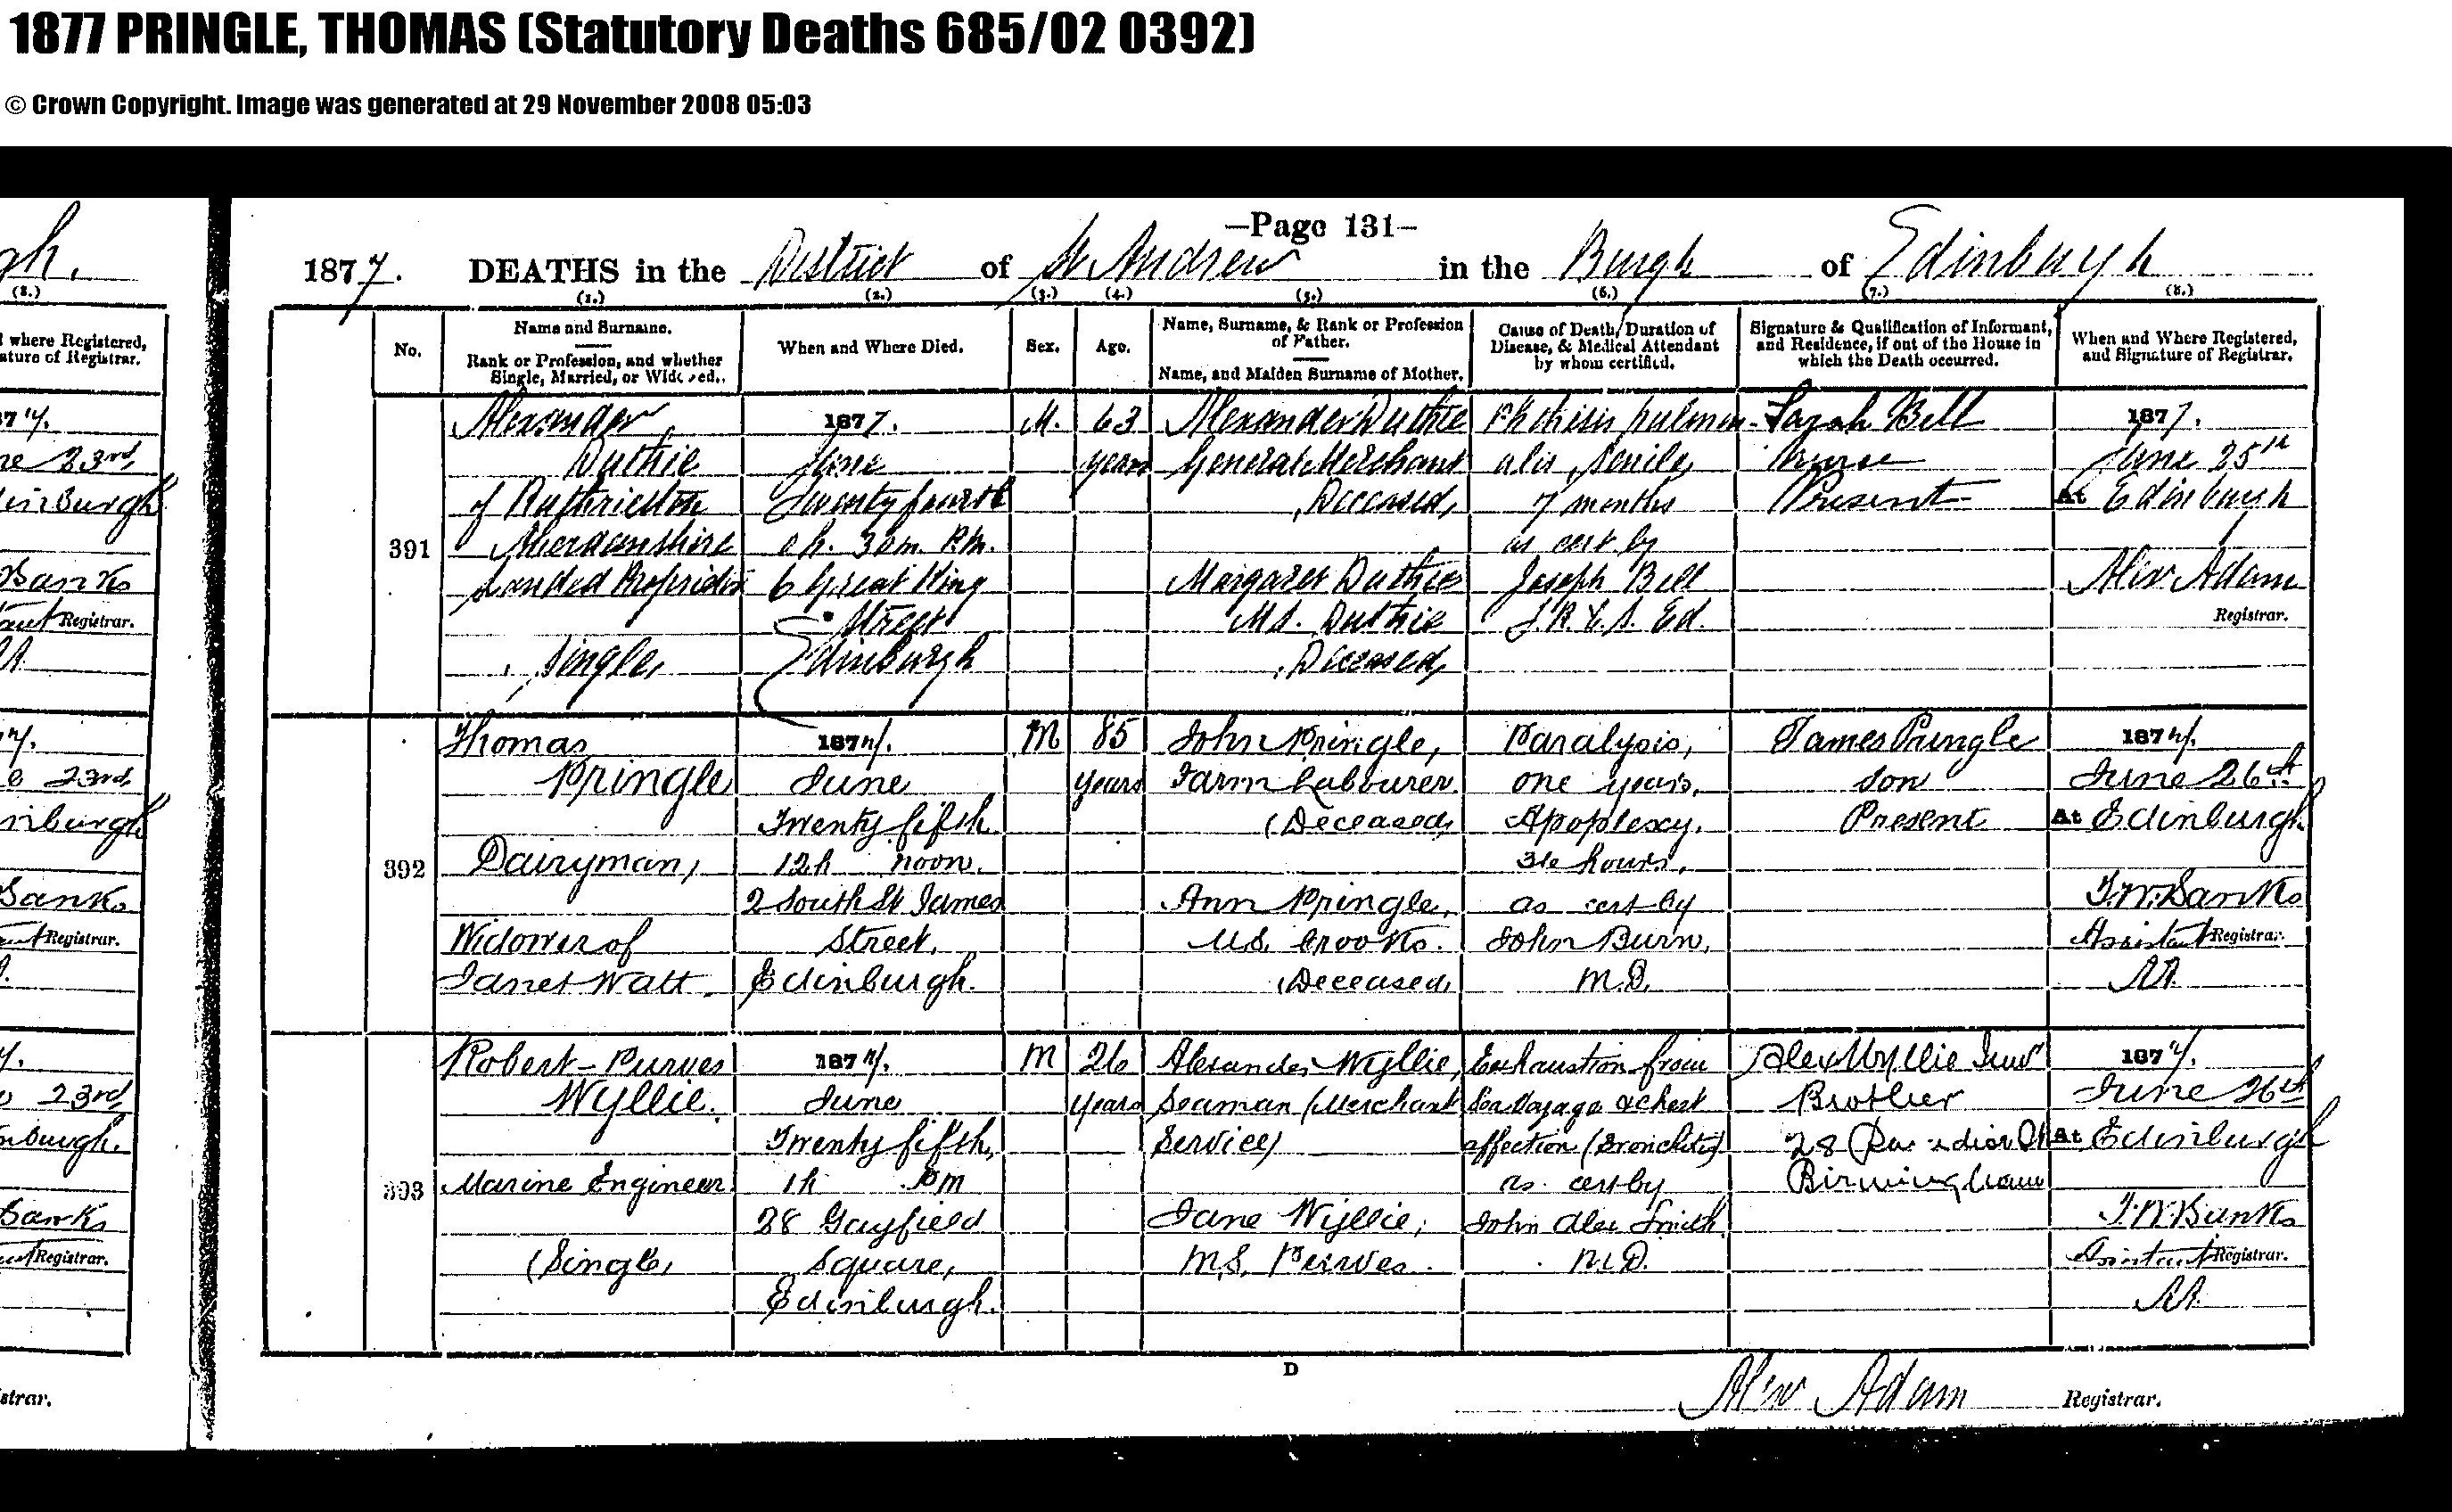 1877 PRINGLE, THOMAS (Statutory Deaths 685/02 0392)
© Crown Copyright. Image was generated at 29 November 2008 05:03
—Page 131—
1877. DEATHS in the District of St Andrew in the Burgh of Edinburgh
(1.) (2.) (3.) (4.) (5.) (6.) (7.) (8.)
No.
Name and Surname.
Rank or Profession, and whether
Single, Married, or Widowed.
When and Where Died.
Sex.
Age.
Name, Surname, & Rank or Profession
of Father.
Name, and Maiden Surname of Mother.
Cause of Death, Duration of
Disease, & Medical Attendant
by whom certified.
Signature & Qualification of Informant,
and Residence, if out of the House in
which the Death occurred.
When and Where Registered,
and Signature of Registrar.
391
Alexander
Duthie
of Ruthrieston
Aberdeenshire
Landed Proprietor
(Single)
1877.
June
Twenty fourth
0h. 30m. P.M.
6 Great King
Street
Edinburgh
M.
63
years
Alexander Duthie
General Merchant
(Deceased)
Margaret Duthie
M.S. Duthie
(Deceased)
Phthisis pulmon-
alis senile,
7 months
as cert by
Joseph Bell
F.R.C.S. Ed.
Sarah Bell
Nurse
Present
1877.
June 25th
At Edinburgh
Alexr Adam
Registrar.
392
Thomas
Pringle
Dairyman,
Widower of
Janet Watt.
1877.
June
Twenty fifth
12h noon.
2 South St James
Street,
Edinburgh.
M
85
years
John Pringle,
Farm Labourer.
(Deceased)
Ann Pringle,
M.S. Crooks.
(Deceased)
Paralysis,
one year,
Apoplexy,
hours,
as cert by
John Burn,
M.D.
James Pringle
son
Present
1877.
June 26th
At Edinburgh
J.W. Banks
Assistant Registrar.
AA.
393
Robert Purves
Wyllie.
Marine Engineer.
(Single)
1877.
June
Twenty fifth,
1h PM
28 Gayfield
Square,
Edinburgh.
M
26
years
Alexander Wyllie,
Seaman (Merchant
Service)
Jane Wyllie,
M.S. Purves.
Exhaustion from
Sea Voyage & chest
affection (Bronchitis)
as cert by
John Alex Smith
M.D.
Alex Wyllie Junr
Brother
28
Birmingham
1877.
June 26th
At Edinburgh
J.W. Banks
Assistant Registrar.
AA.
D
Alexr Adam Registrar.